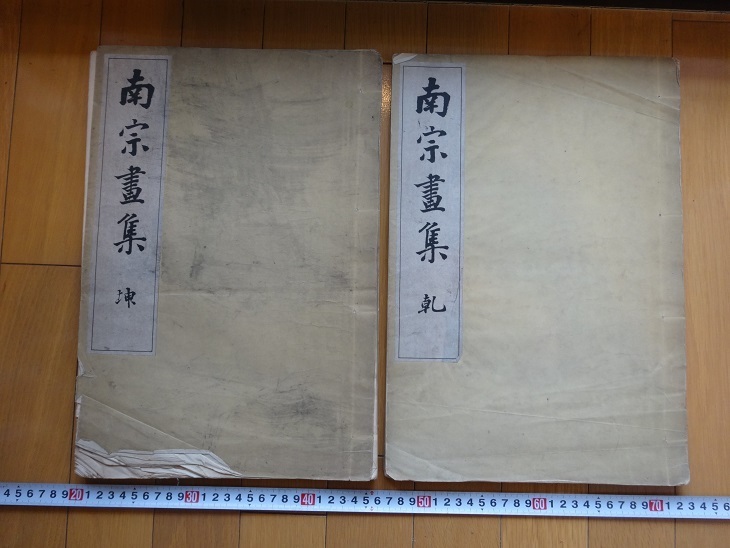 南宗畫集 乾
南宗畫集 坤
4 5 6 7 8 9 20 1 2 3 4 5 6 7 8 9 30 1 2 3 4 5 6 7 8 9 40 1 2 3 4 5 6 7 8 9 50 1 2 3 4 5 6 7 8 9 60 1 2 3 4 5 6 7 8 9 70 1 2 3 4 5 6